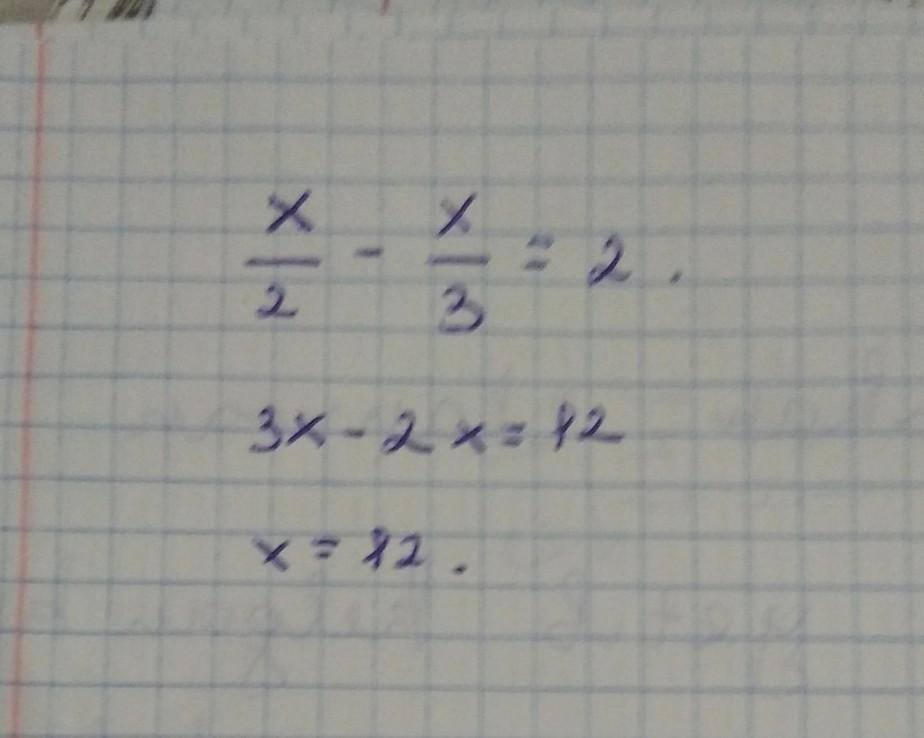 x/2 - x/3 = 2.
3x - 2x = 12
x = 12.